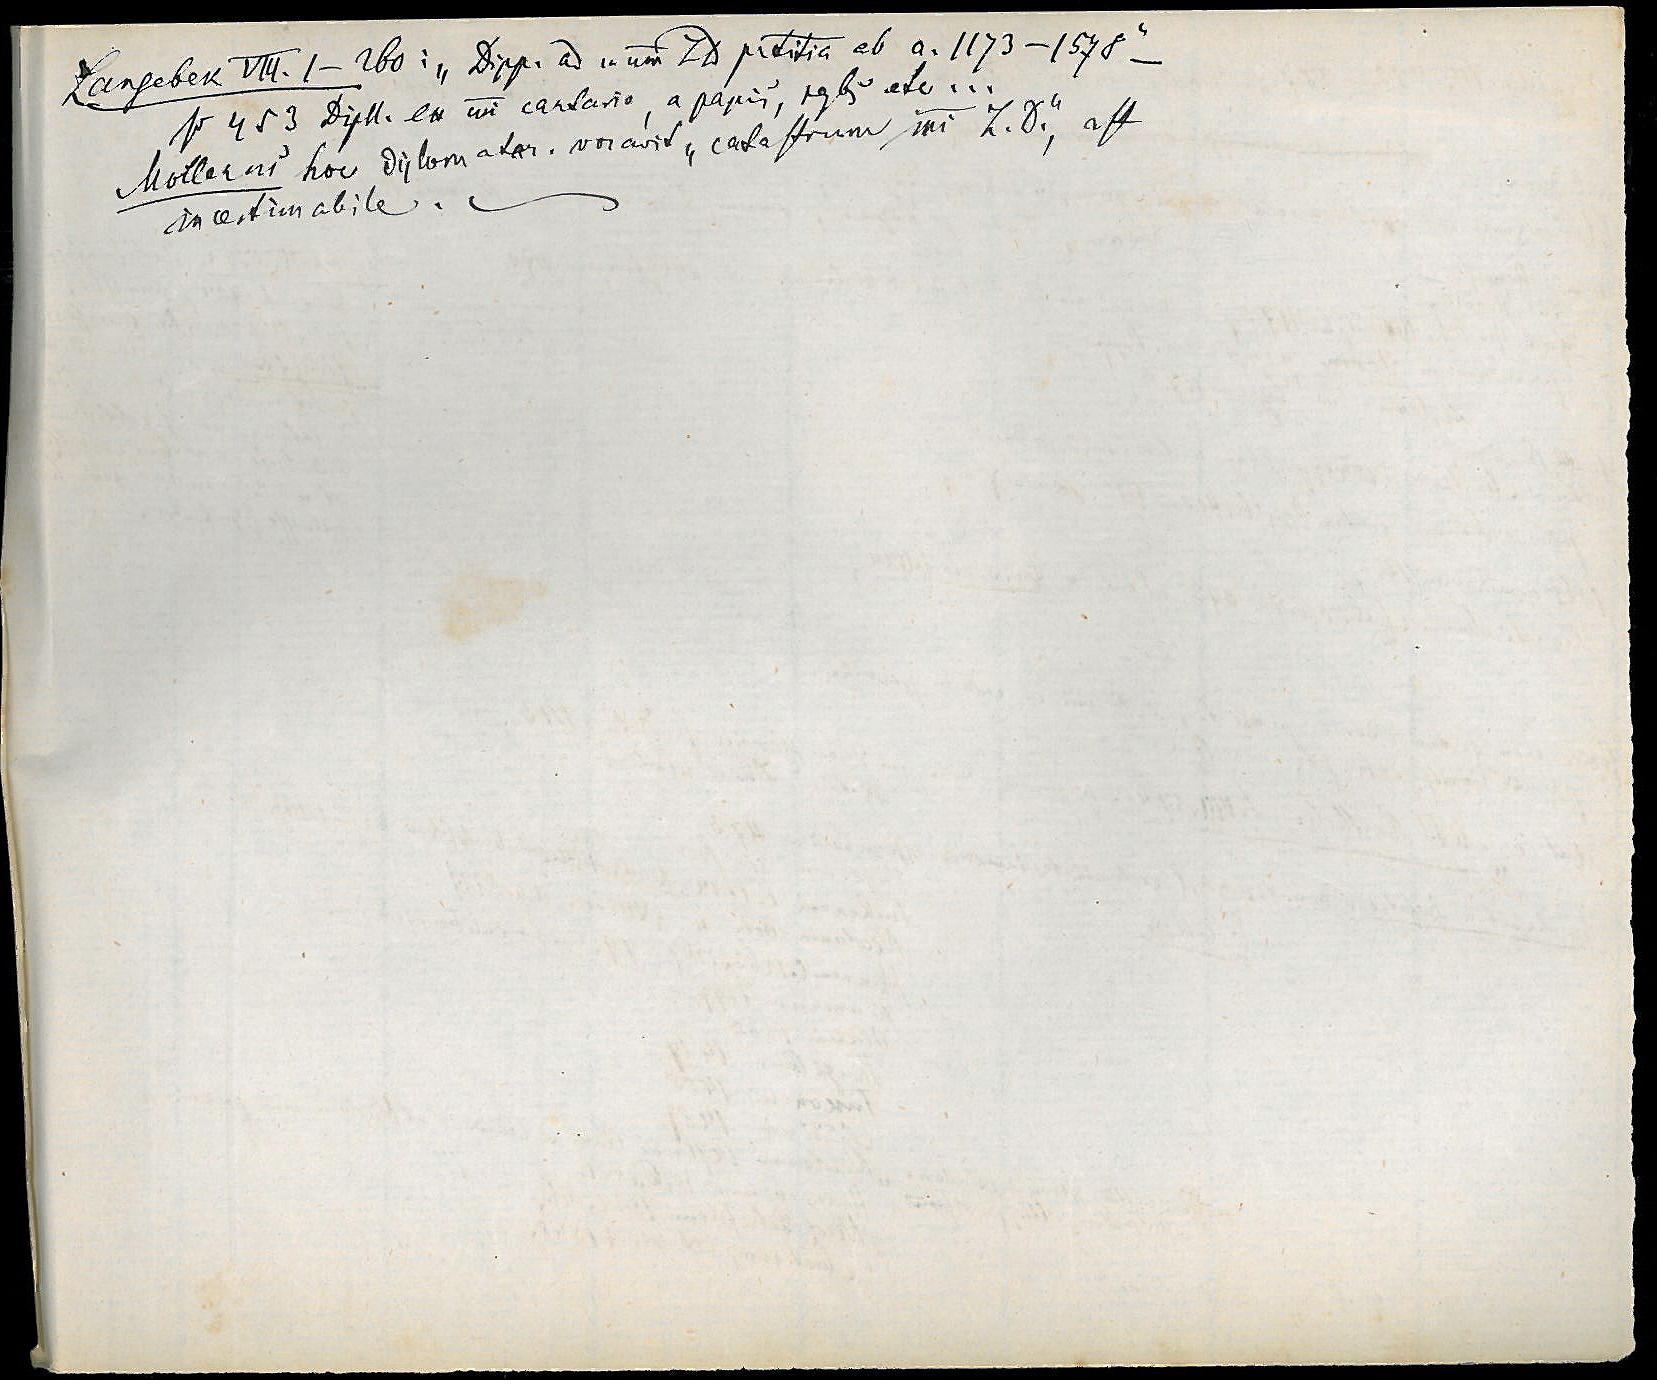 Langebek VIII. 1–260: „Dipp. ad m̅u̅m̅ LD p̅t̅i̅t̅i̅a ab a. 1173–1578“
p 453 Dipll. ex m̅i̅ cartario, a papis, reg̅b̅s etc...
Mollerus hoc diplomatar. vocavit „catastrum m̅i̅ L.D.“,
inæstimabile.